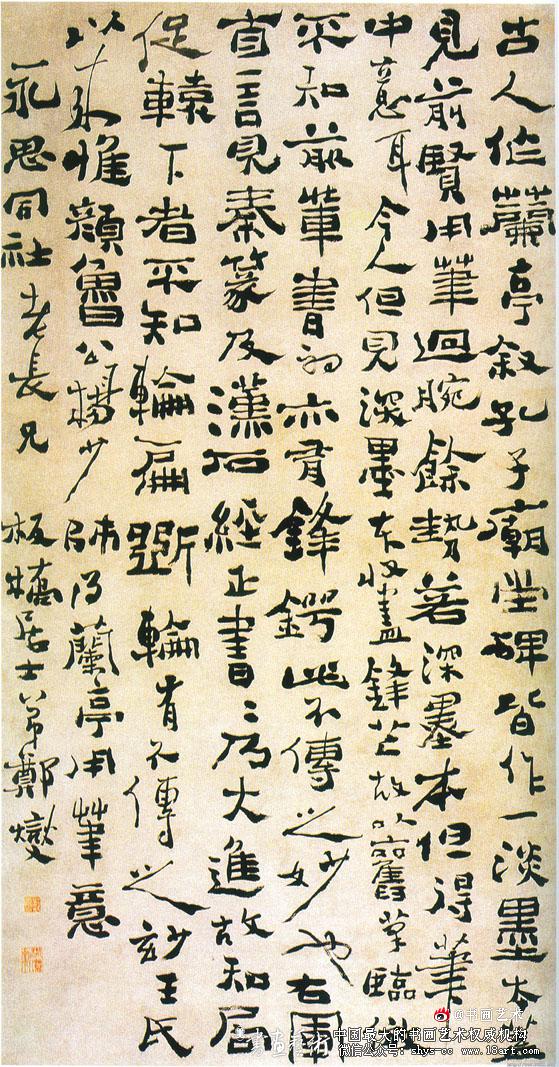 古人作蘭亭叙孔子廟堂碑皆作一淡墨本蓋
見前賢用筆迴腕餘勢若深墨本但得筆
中意耳今人但見深墨本收盡鋒芒故以舊筆臨倣
不知前輩書初亦有鋒鍔此不傳之妙也右軍
自言見秦篆及漢石經正書〻乃大進故知局
促轅下者不知輪扁斲輪有不傳之妙王氏
以來惟顏魯公楊少師得蘭亭用筆意
永思同社老長兄 板橋居士弟鄭燮
@书画艺术
中国最大的书画艺术权威机构
微信公众号：shys-cc www.18art.com